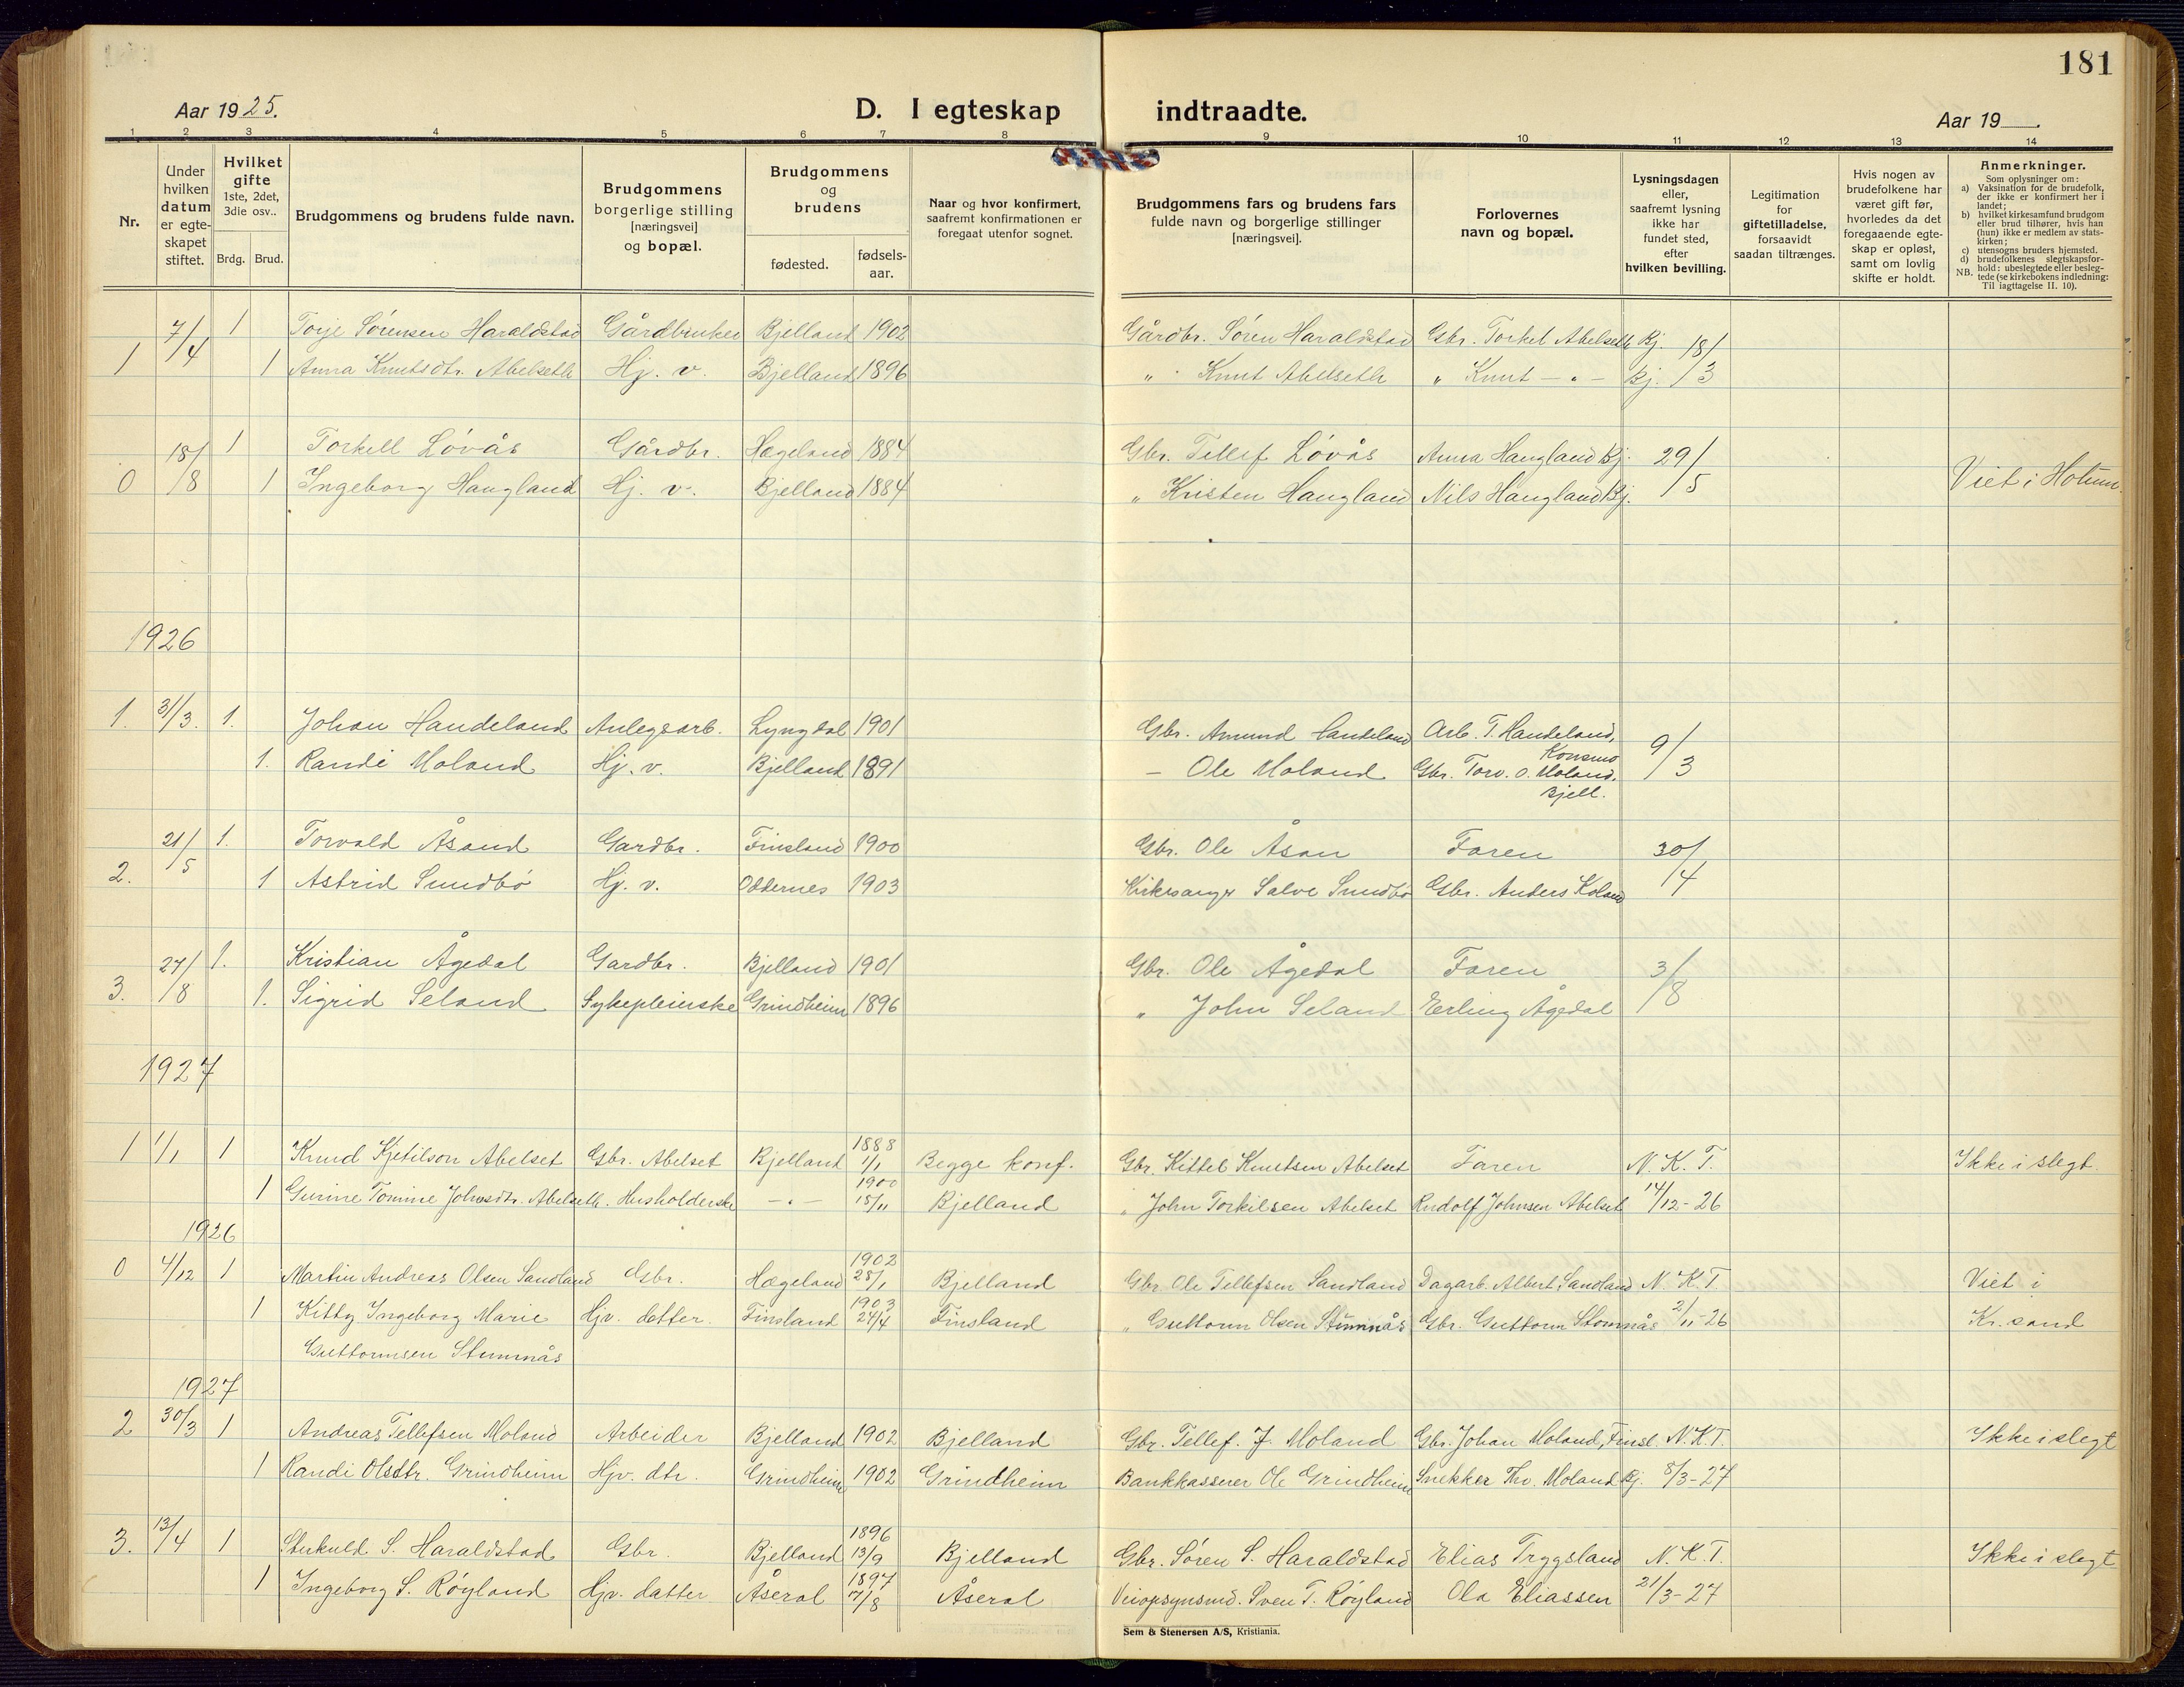 181
Aar 1925.
D. I egteskap indtraadte.
Aar 19
1 2 3 4 5 6 7 8 9 10 11 12 13 14
Nr.
Under hvilken datum er egteskapet stiftet.
Hvilket gifte 1ste, 2det, 3die osv..
Brdg. Brud.
Brudgommens og brudens fulde navn.
Brudgommens borgerlige stilling [næringsvei] og bopæl.
Brudgommens og brudens
fødested. fødselsaar.
Naar og hvor konfirmert, saafremt konfirmationen er foregaat utenfor sognet.
Brudgommens fars og brudens fars fulde navn og borgerlige stillinger [næringsvei].
Forlovernes navn og bopæl.
Lysningsdagen eller, saafremt lysning ikke har fundet sted, efter hvilken bevilling.
Legitimation for giftetilladelse, forsaavidt saadan tiltrænges.
Hvis nogen av brudefolkene har været gift før, hvorledes da det foregaaende egteskap er opløst, samt om lovlig skifte er holdt.
Anmerkninger.
Som oplysninger om:
a) Vaksination for de brudefolk, der ikke er konfirmert her i landet;
b) hvilket kirkesamfund brudgom eller brud tilhører, hvis han (hun) ikke er medlem av statskirken;
c) utensogns bruders hjemsted.
d) brudefolkenes slegtskapsforhold: ubeslegtede eller beslegtede (se kirkebokens indledning: Til iagttagelse II. 10).
NB.
7/4 1 Torje Sørensen Haraldstad Gårdbruker Bjelland 1902 Gårdbr. Søren Haraldstad Gbr. Torkel Abelseth Bj. 18/3
1 1 Anna Knutsdtr. Abelseth Hj. v. Bjelland 1896 " Knut Abelseth " Knut - " - Bj.
18/8 1 Torkell Lövås Gårdbr. Hægeland 1884 Gbr. Tellef Lövås Anna Haugland Bj. 29/5
0 1 Ingeborg Haugland Hj. v. Bjelland 1884 " Kristen Haugland Nils Haugland Bj. Viet i Holum.
1926
1. 3/3. 1. Johan Handeland Anlegsarb. Lyngdal 1901 Gbr. Amund Handeland Arb. T. Handeland, Konsmo 9/3
1. Randi Moland Hj. v. Bjelland 1891 - Ole Moland Gbr. Torv. O. Moland, Bjell.
21/5 1. Torvald Åsand Gardbr. Finsland 1900 Gbr. Ole Åsan Faren 30/4
2. 1 Astrid Sundbö Hj. v. Oddernes 1903 Kirkesanger Salve Sundbö Gbr. Anders Koland
27/8 1. Kristian Ågedal Gardbr. Bjelland 1901 Gbr. Ole Ågedal Faren 3/8
3. 1. Sigrid Seland Sykepleierske Grindheim 1896 " John Seland Erling Ågedal
1927
1 1/1 1 Knud Kjetilson Abelset Gbr. Abelset Bjelland 1888 1/1 Begge konf. Gbr. Kittel Knutsen Abelset Faren N. K. T. Ikke i slegt.
1 Gurine Tomine Johnsdtr. Abelseth. Husholderske - " - 1900 15/11 Bjelland " John Torkilsen Abelset Rudolf Johnsen Abelset 14/12-26
1926
0 4/12 1 Martin Andreas Olsen Sandland Gbr. Hægeland 1902 25/1 Bjelland Gbr. Ole Tellefsen Sandland Dagarb. Albert Sandland N. K. T. Viet i
1 Kitty Ingeborg Marie Hjv. datter. Finsland 1903 24/4 Finsland " Guttorm Olsen Stumnås Gbr. Guttorm Stomnås 2/11-26 Kr. sand
Guttormsen Stumnås
1927
2 30/3 1 Andreas Tellefsen Moland Arbeider Bjelland 1902 Bjelland Gbr. Tellef. J. Moland Gbr. Johan Moland, Finsl. N. K. T. Ikke i slegt
1 Randi Olsdtr. Grindheim Hjv. dtr. Grindheim 1902 Grindheim Bankkasserer Ole Grindheim Snekker Thv. Moland Bj. 8/3-27
3. 13/4 1 S. Haraldstad Gbr. Bjelland 1896 13/9 Bjelland Gbr. Søren S. Haraldstad Elias Tryggsland N. K. T. Ikke i slegt
1 Ingeborg S. Røyland Hjv. datter Åseral 1897 7/8 Åseral Veiopsynsmd. Sven T. Røyland Ola Eliassen 21/3-27
Sem & Stenersen A/S, Kristiania.